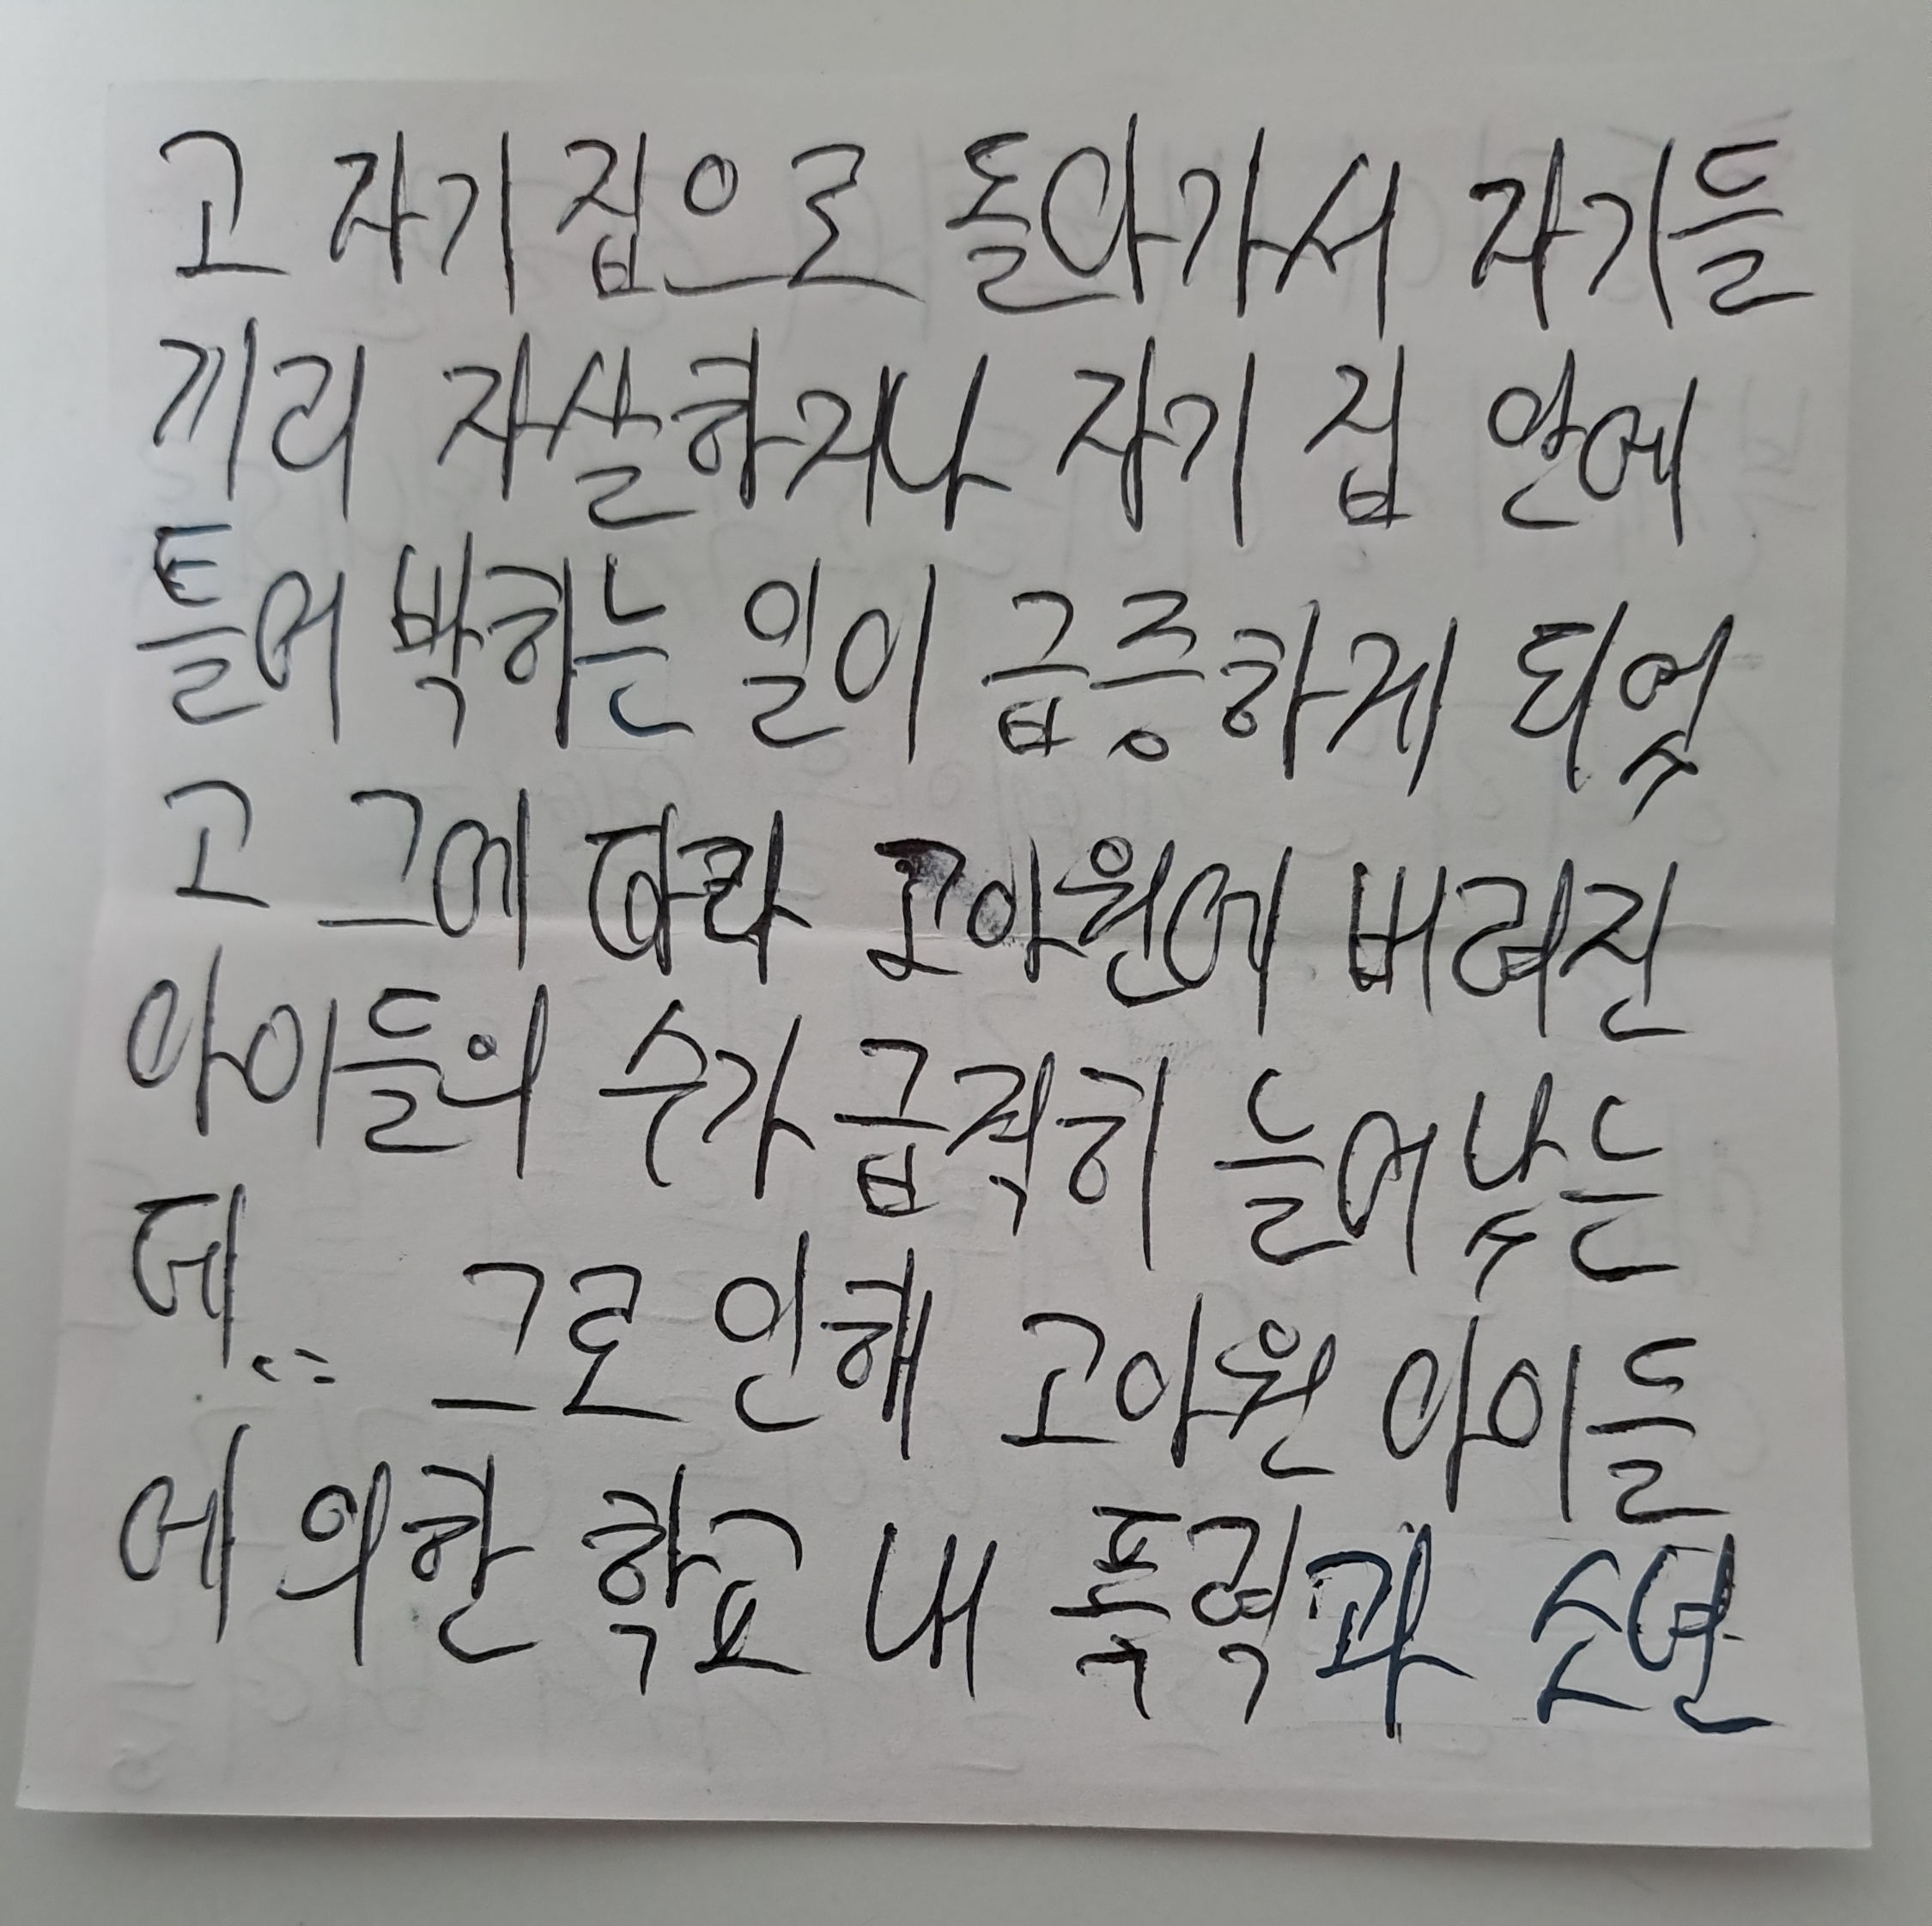 고 자기 집으로 돌아가서 자기들
끼리 자살하거나 자기 집 안에
틀어 박히는 일이 급증하게 되었
고 그에 따라 고아원에 버려진
아이들의 수가 급격히 늘어났는
데... 그로 인해 고아원 아이들
에 의한 학교 내 폭력과 소년